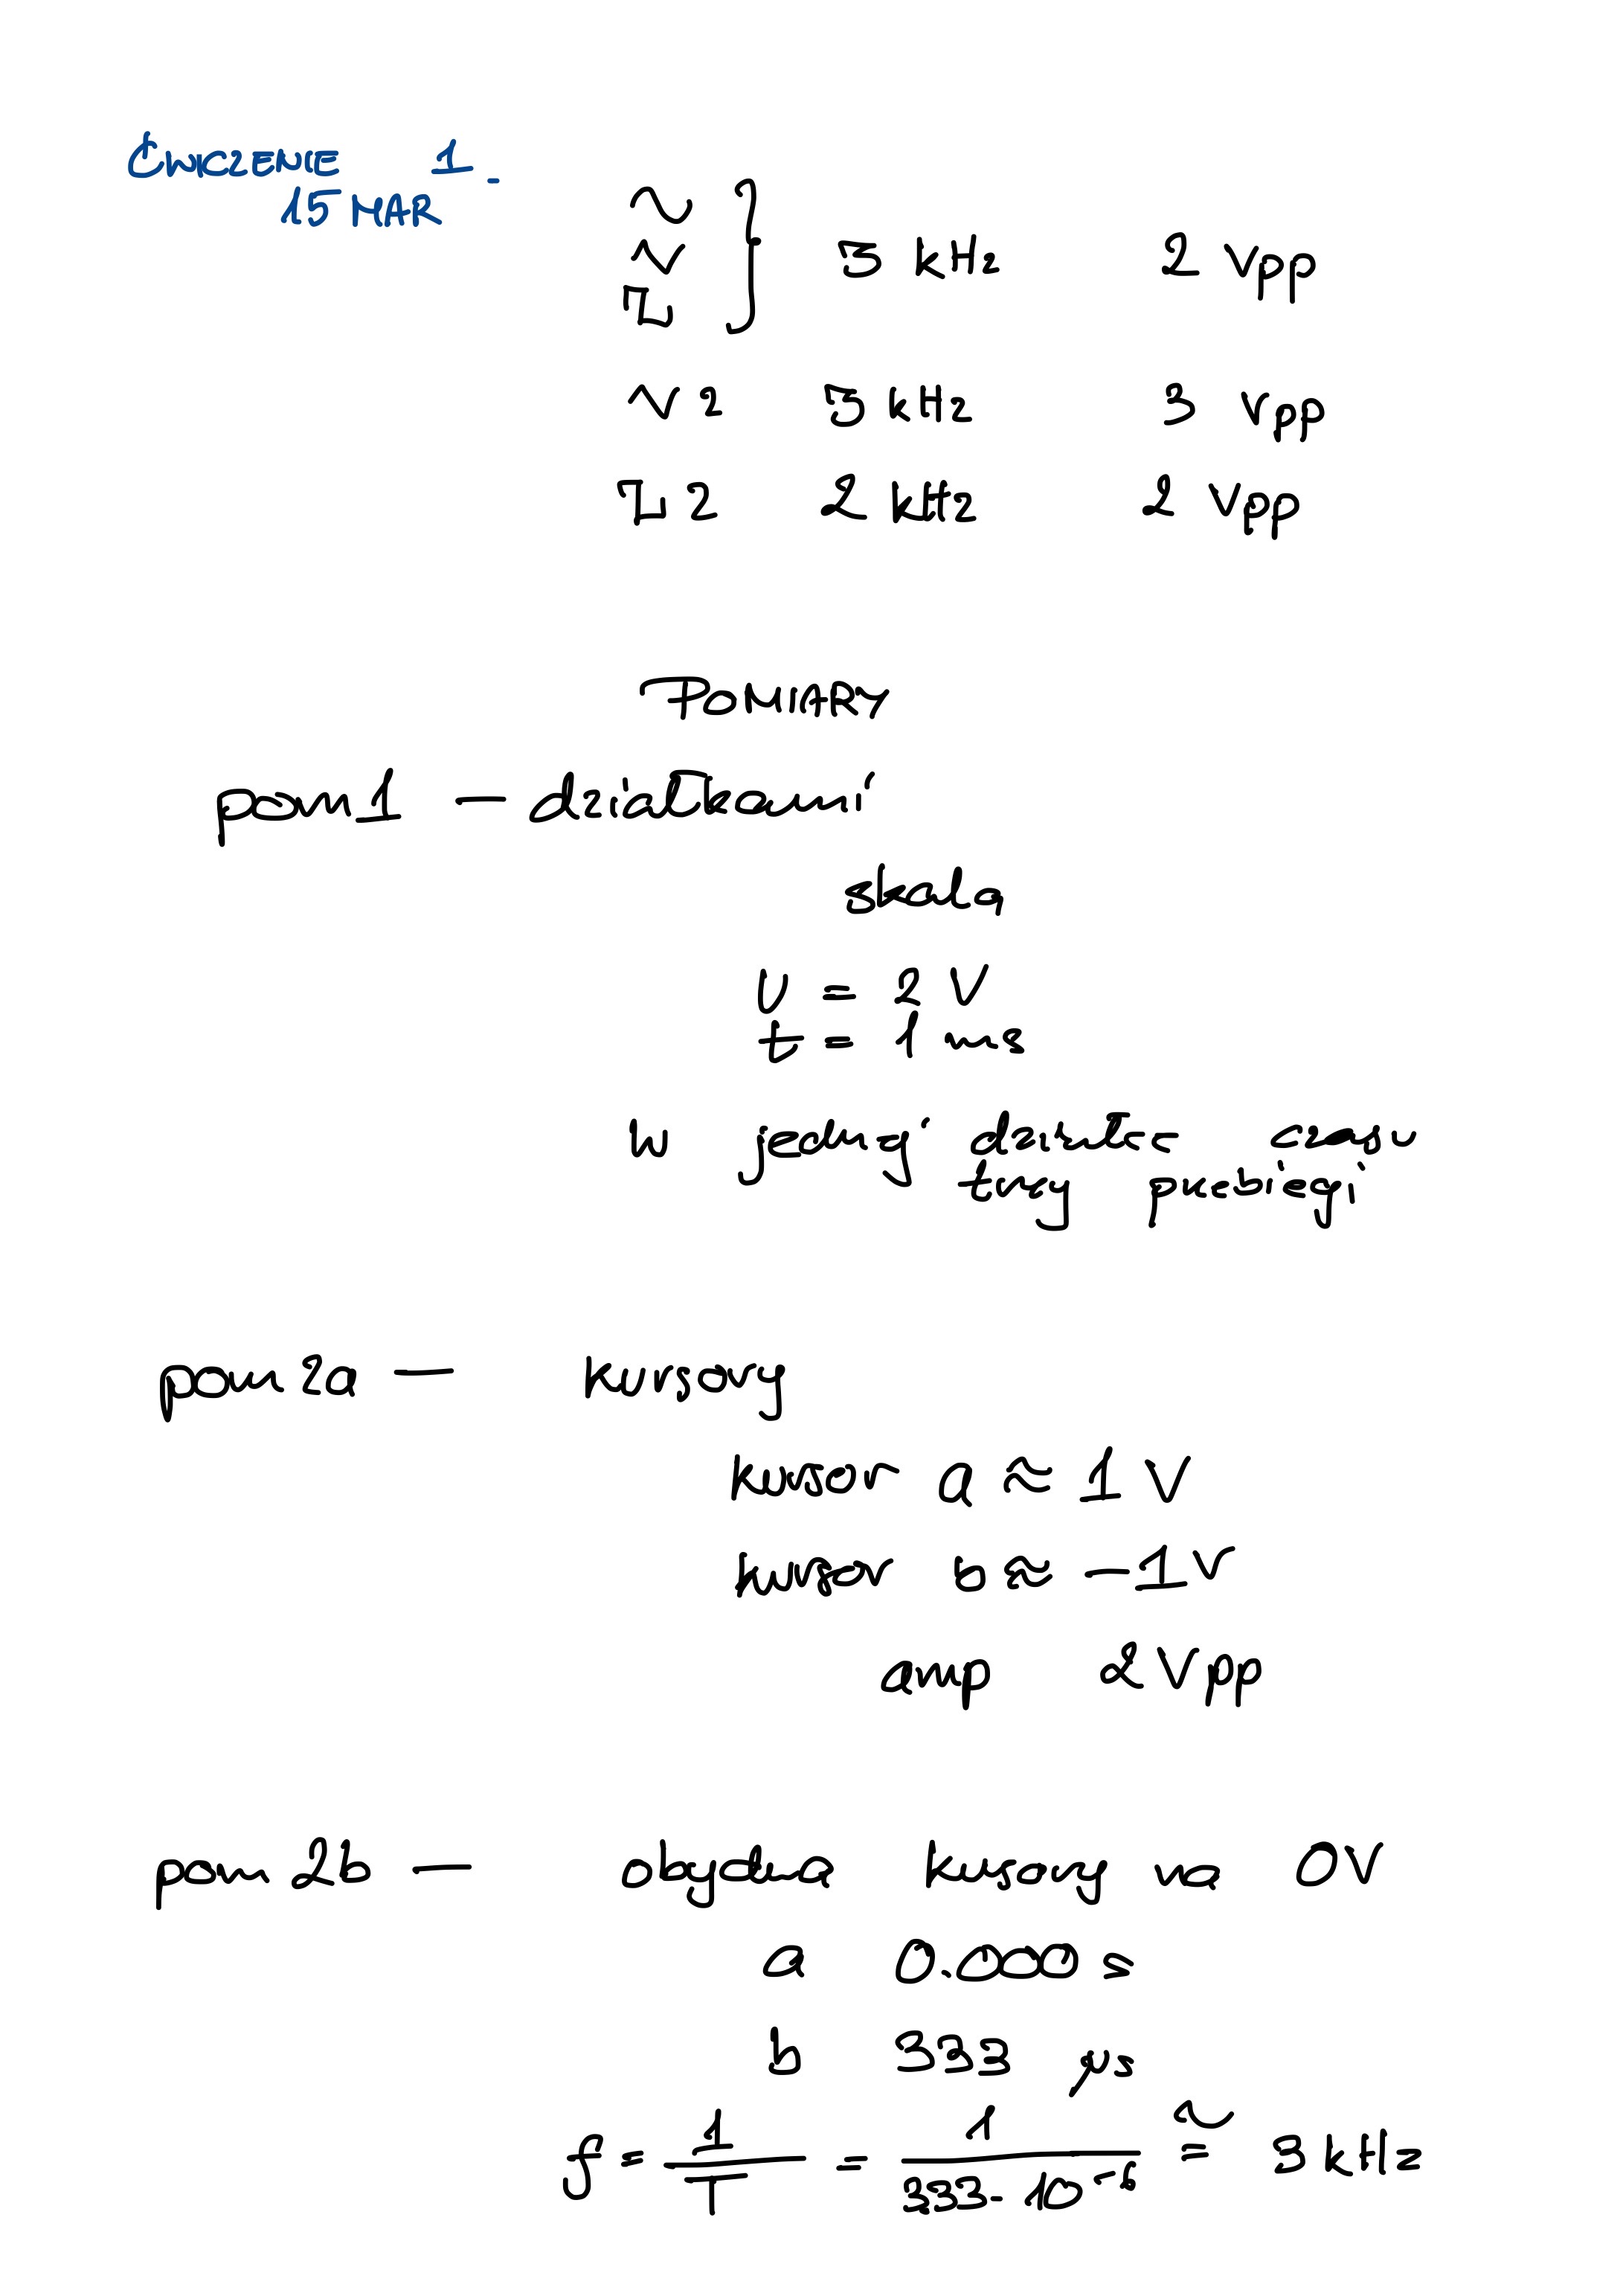 ĆWICZENIE 1.
15 MAR
3 kHz 2 Vpp
2 3 kHz 3 Vpp
2 2 kHz 2 Vpp
POMIARY
pom 1 — działkami
skala
U = 2 V
t = 1 ms
w jednej działce czasu
trzy przebiegi
pom 2a — kursory
kursor a ≈ 1 V
kursor b ≈ -1 V
amp 2 Vpp
pom 2b — obydwa kursory na 0V
a 0.000 s
b 333 µs
f = 1/T = 1/(333·10^-6) ≅ 3 kHz